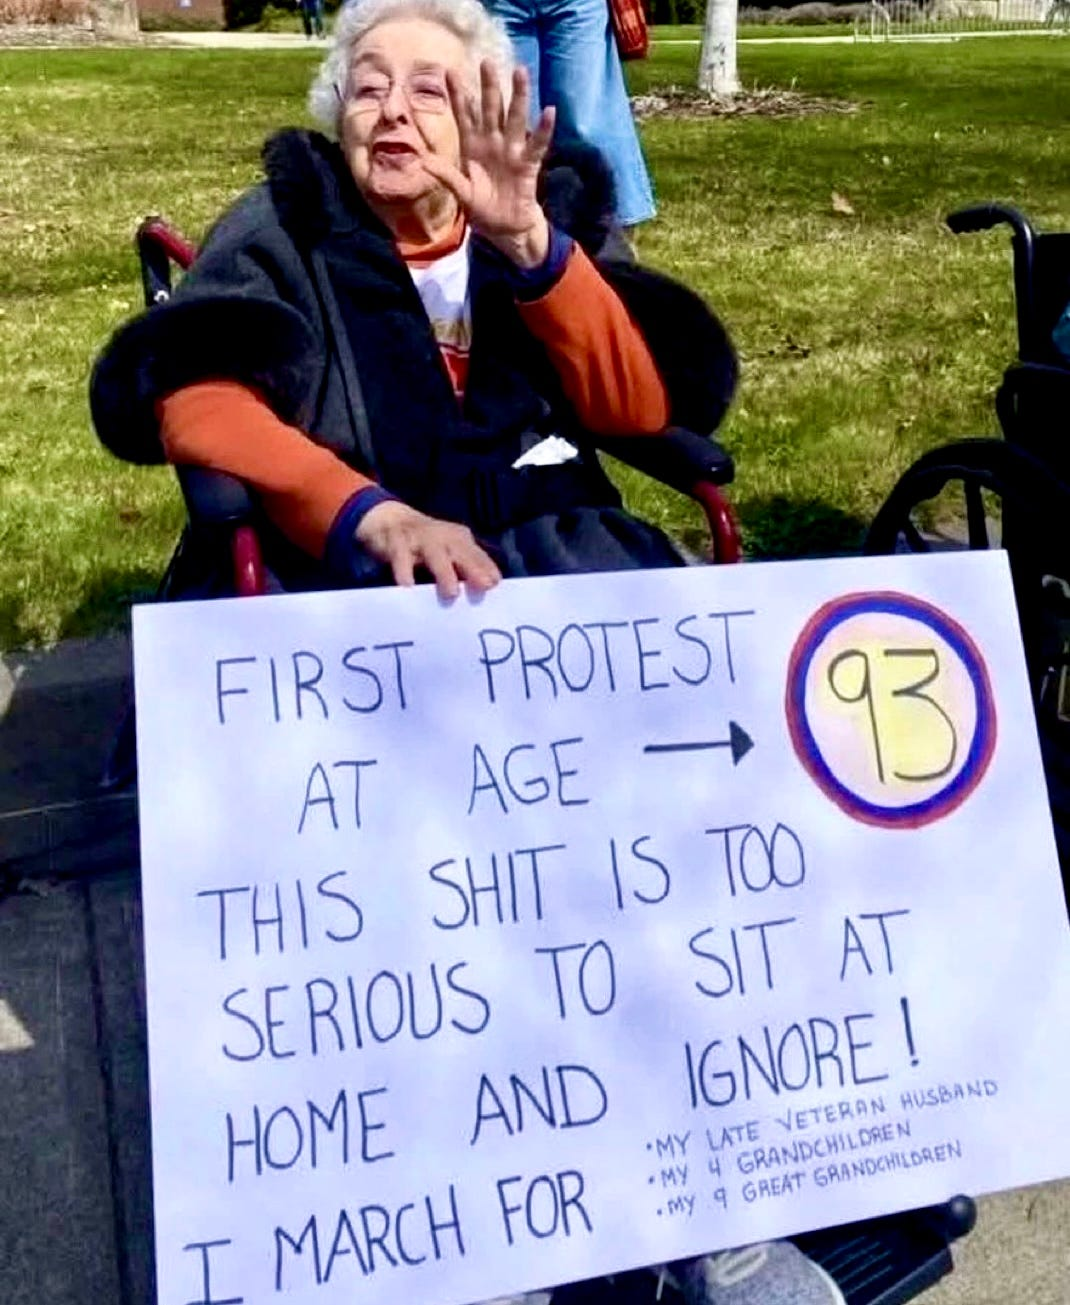 FIRST PROTEST
AT AGE → 93
THIS SHIT IS TOO
SERIOUS TO SIT AT
HOME AND IGNORE!
I MARCH FOR
•MY LATE VETERAN HUSBAND
•MY 4 GRANDCHILDREN
•MY 9 GREAT GRANDCHILDREN